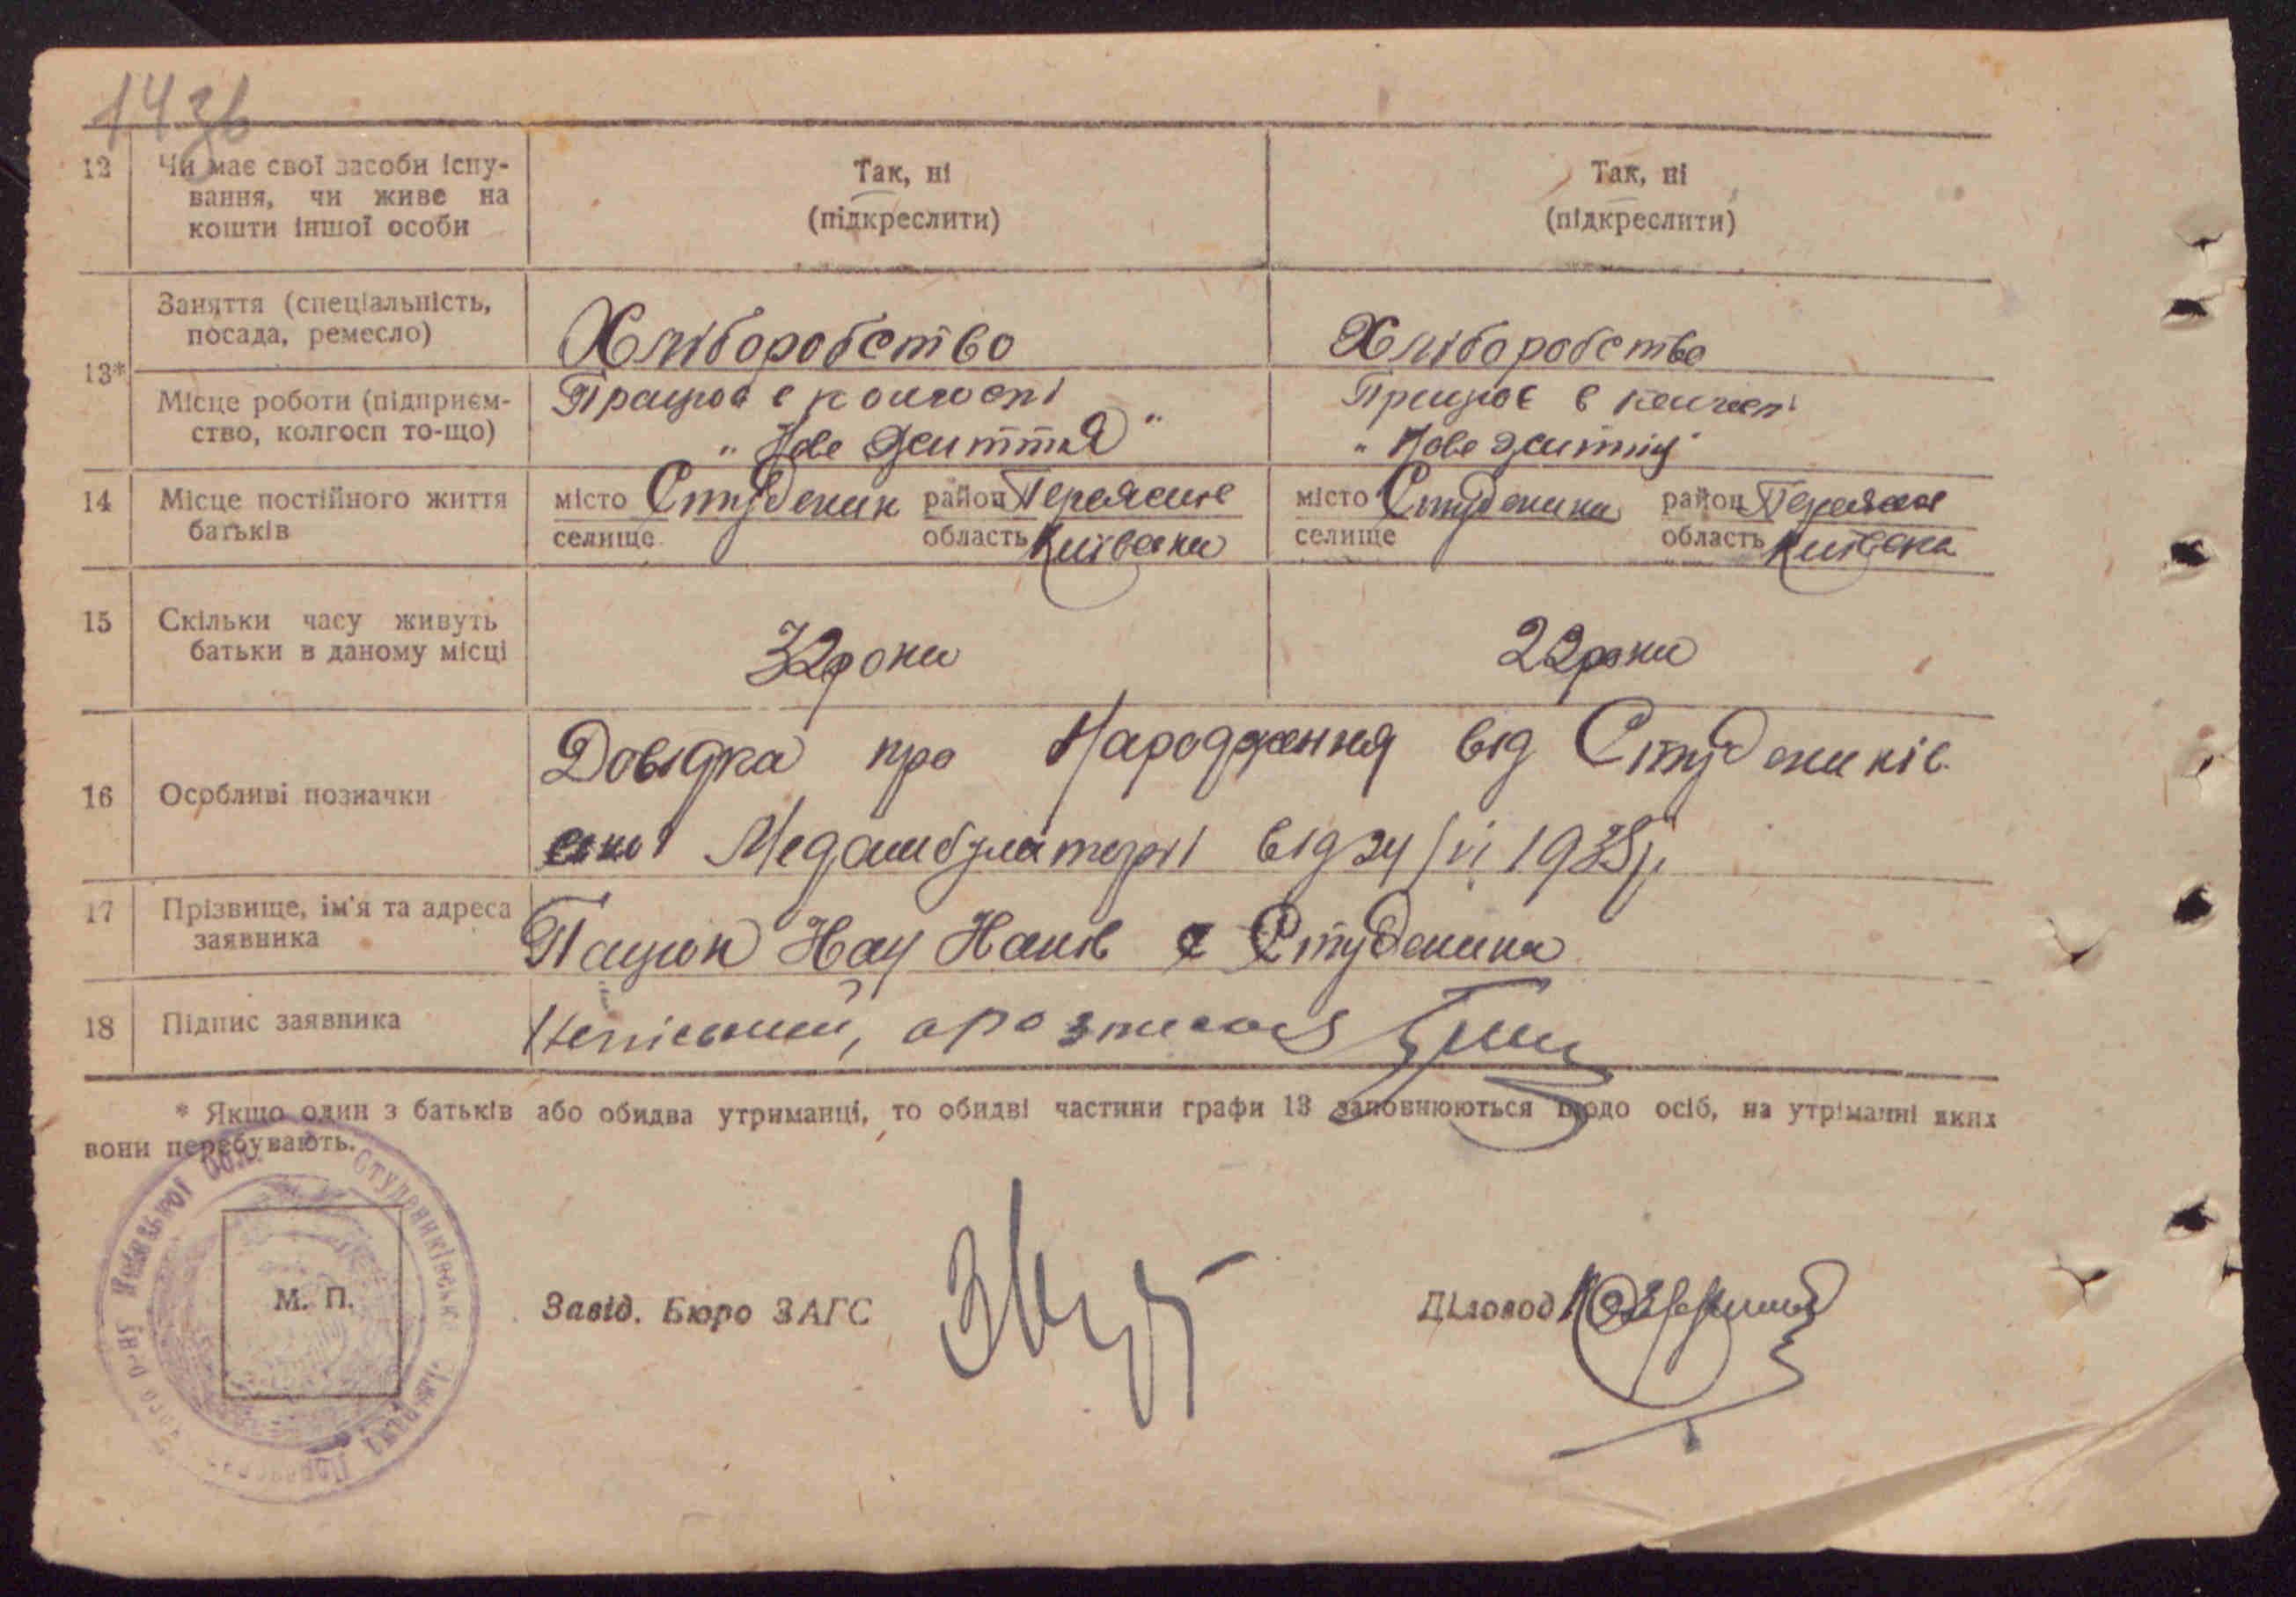 14 зв
12 Чи має свої засоби існу-
вання, чи живе на
кошти іншої особи
Так, ні
(підкреслити)
Так, ні
(підкреслити)
13*
Заняття (спеціальність,
посада, ремесло)
Хліборобство
Хліборобство
Місце роботи (підприєм-
ство, колгосп то-що)
Працює в колгоспі
„Нове життя"
Працює в колгоспі
„Нове життя"
14 Місце постійного життя
батьків
місто Студеник район Переяслве
селище область Київська
місто Студеники район Переяслве
селище область Київська
15 Скільки часу живуть
батьки в даному місці
32 роки
22 роки
16 Особливі позначки
Довідка про Народження від Студеників
ської Медамбулаторії від 24/VI 1938 р
17 Прізвище, ім'я та адреса
заявника
Пацюк Нау Наків с Студеники
18 Підпис заявника
Неписьмений, а розписався
* Якщо один з батьків або обидва утриманці, то обидві частини графи 13 заповнюються щодо осіб, на утриманні яких
вони перебувають.
М. П.
Завід. Бюро ЗАГС
Діловод
Київської Обл. Студениківська